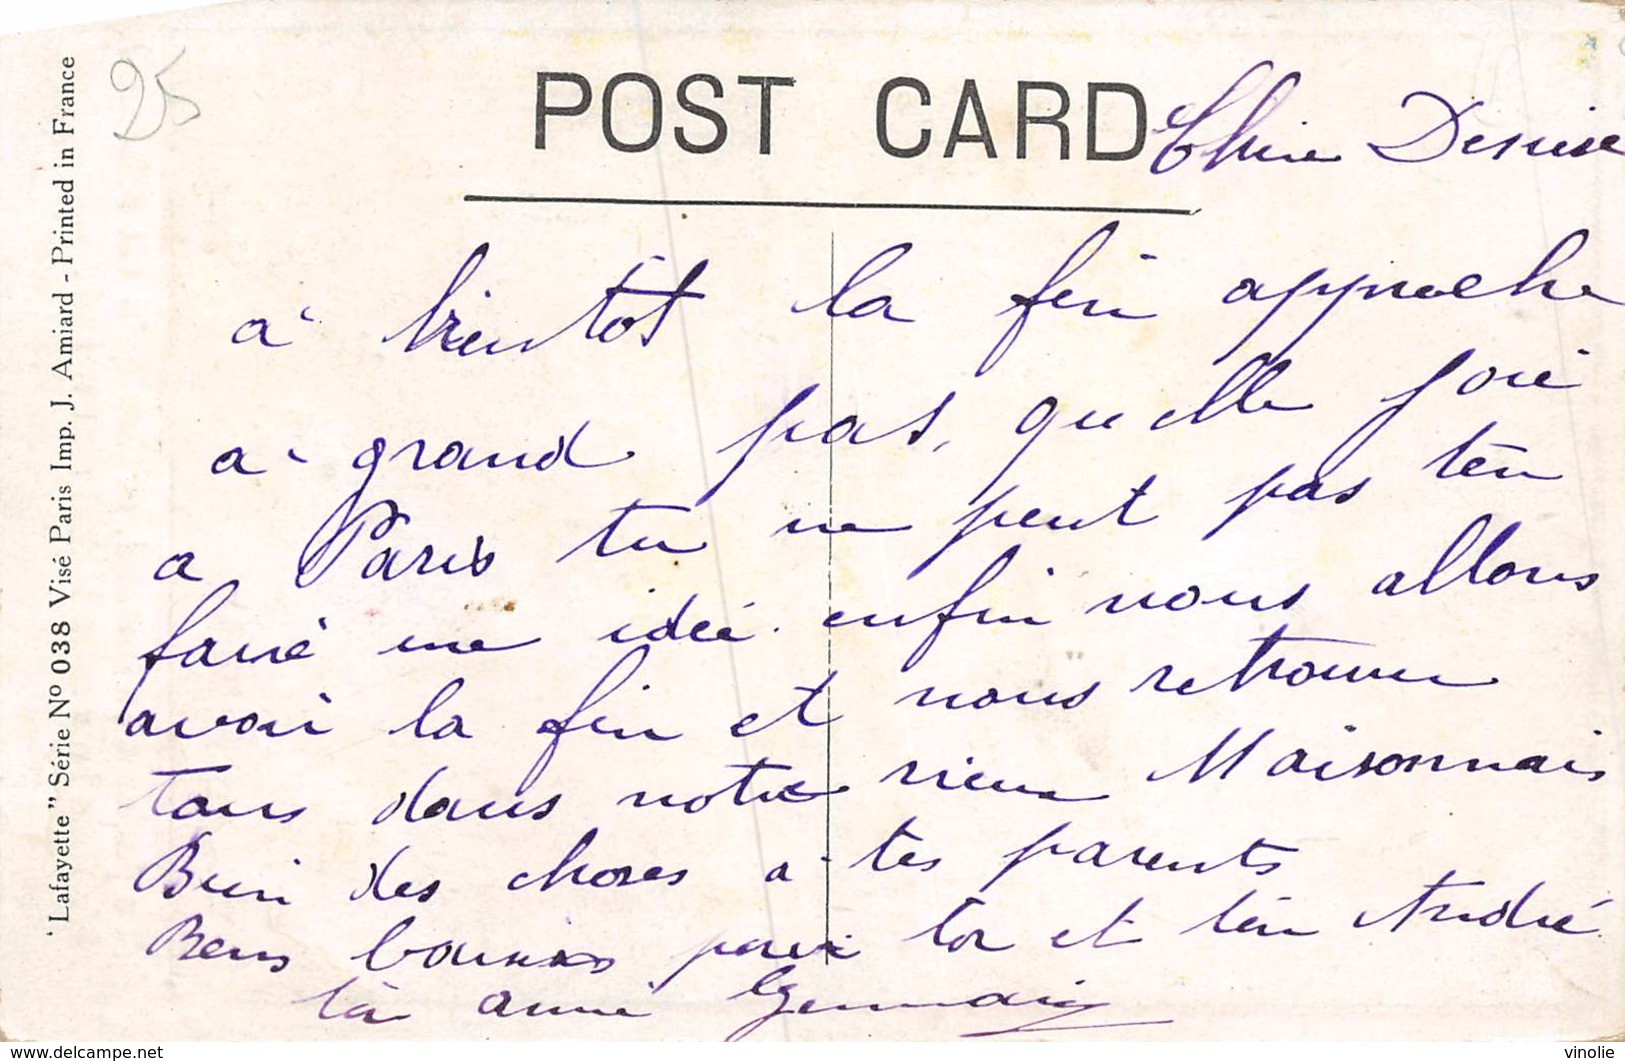 25
POST CARD
Chère Denise
à bientôt la fin approche
a grand pas, quelle joie
a Paris tu ne peut pas t'en
faire une idée. enfin nous allons
avoir la fin et nous retrouver
tous dans notre vieux Maisonnais
Bien des choses à tes parents
Bons baisers pour toi et ton André
ta amie Germaine
"Lafayette" Série Nº 038 Visé Paris Imp. J. Amiard - Printed in France
delcampe.net
vinolie